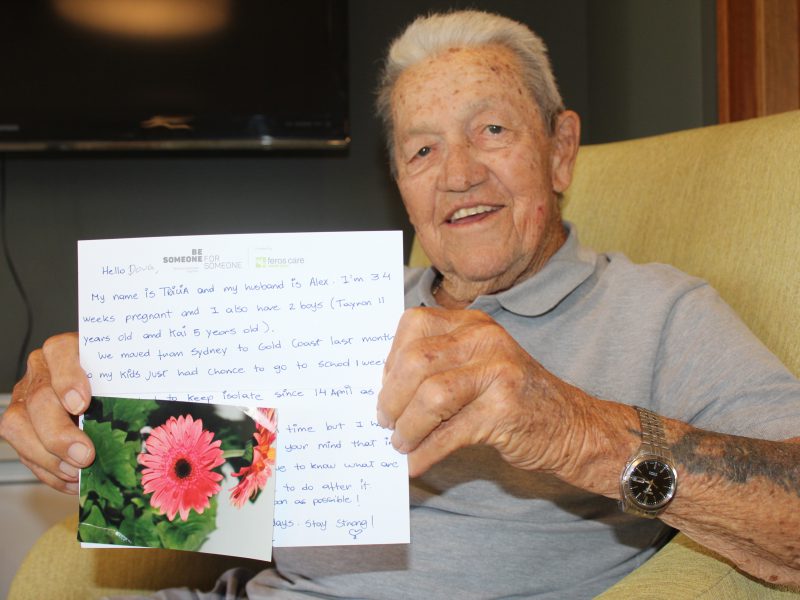 BE
SOMEONE FOR
SOMEONE
feros care
Hello Doug,
My name is Tricia and my husband is Alex. I'm 34
weeks pregnant and I also have 2 boys (Taynon 11
years old and Kai 5 years old).
We moved from Sydney to Gold Coast last month
my kids just had chance to go to school 1 week
to keep isolate since 14 April as
time but I h
your mind that i
to know what are
to do after it.
soon as possible!
days. Stay Strong!